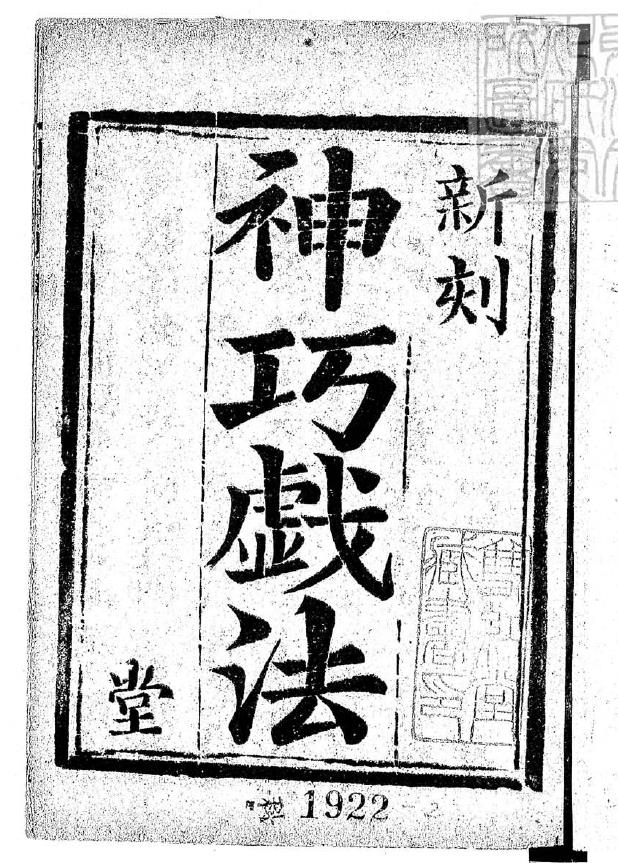 新刻
神巧戯法
堂
1922